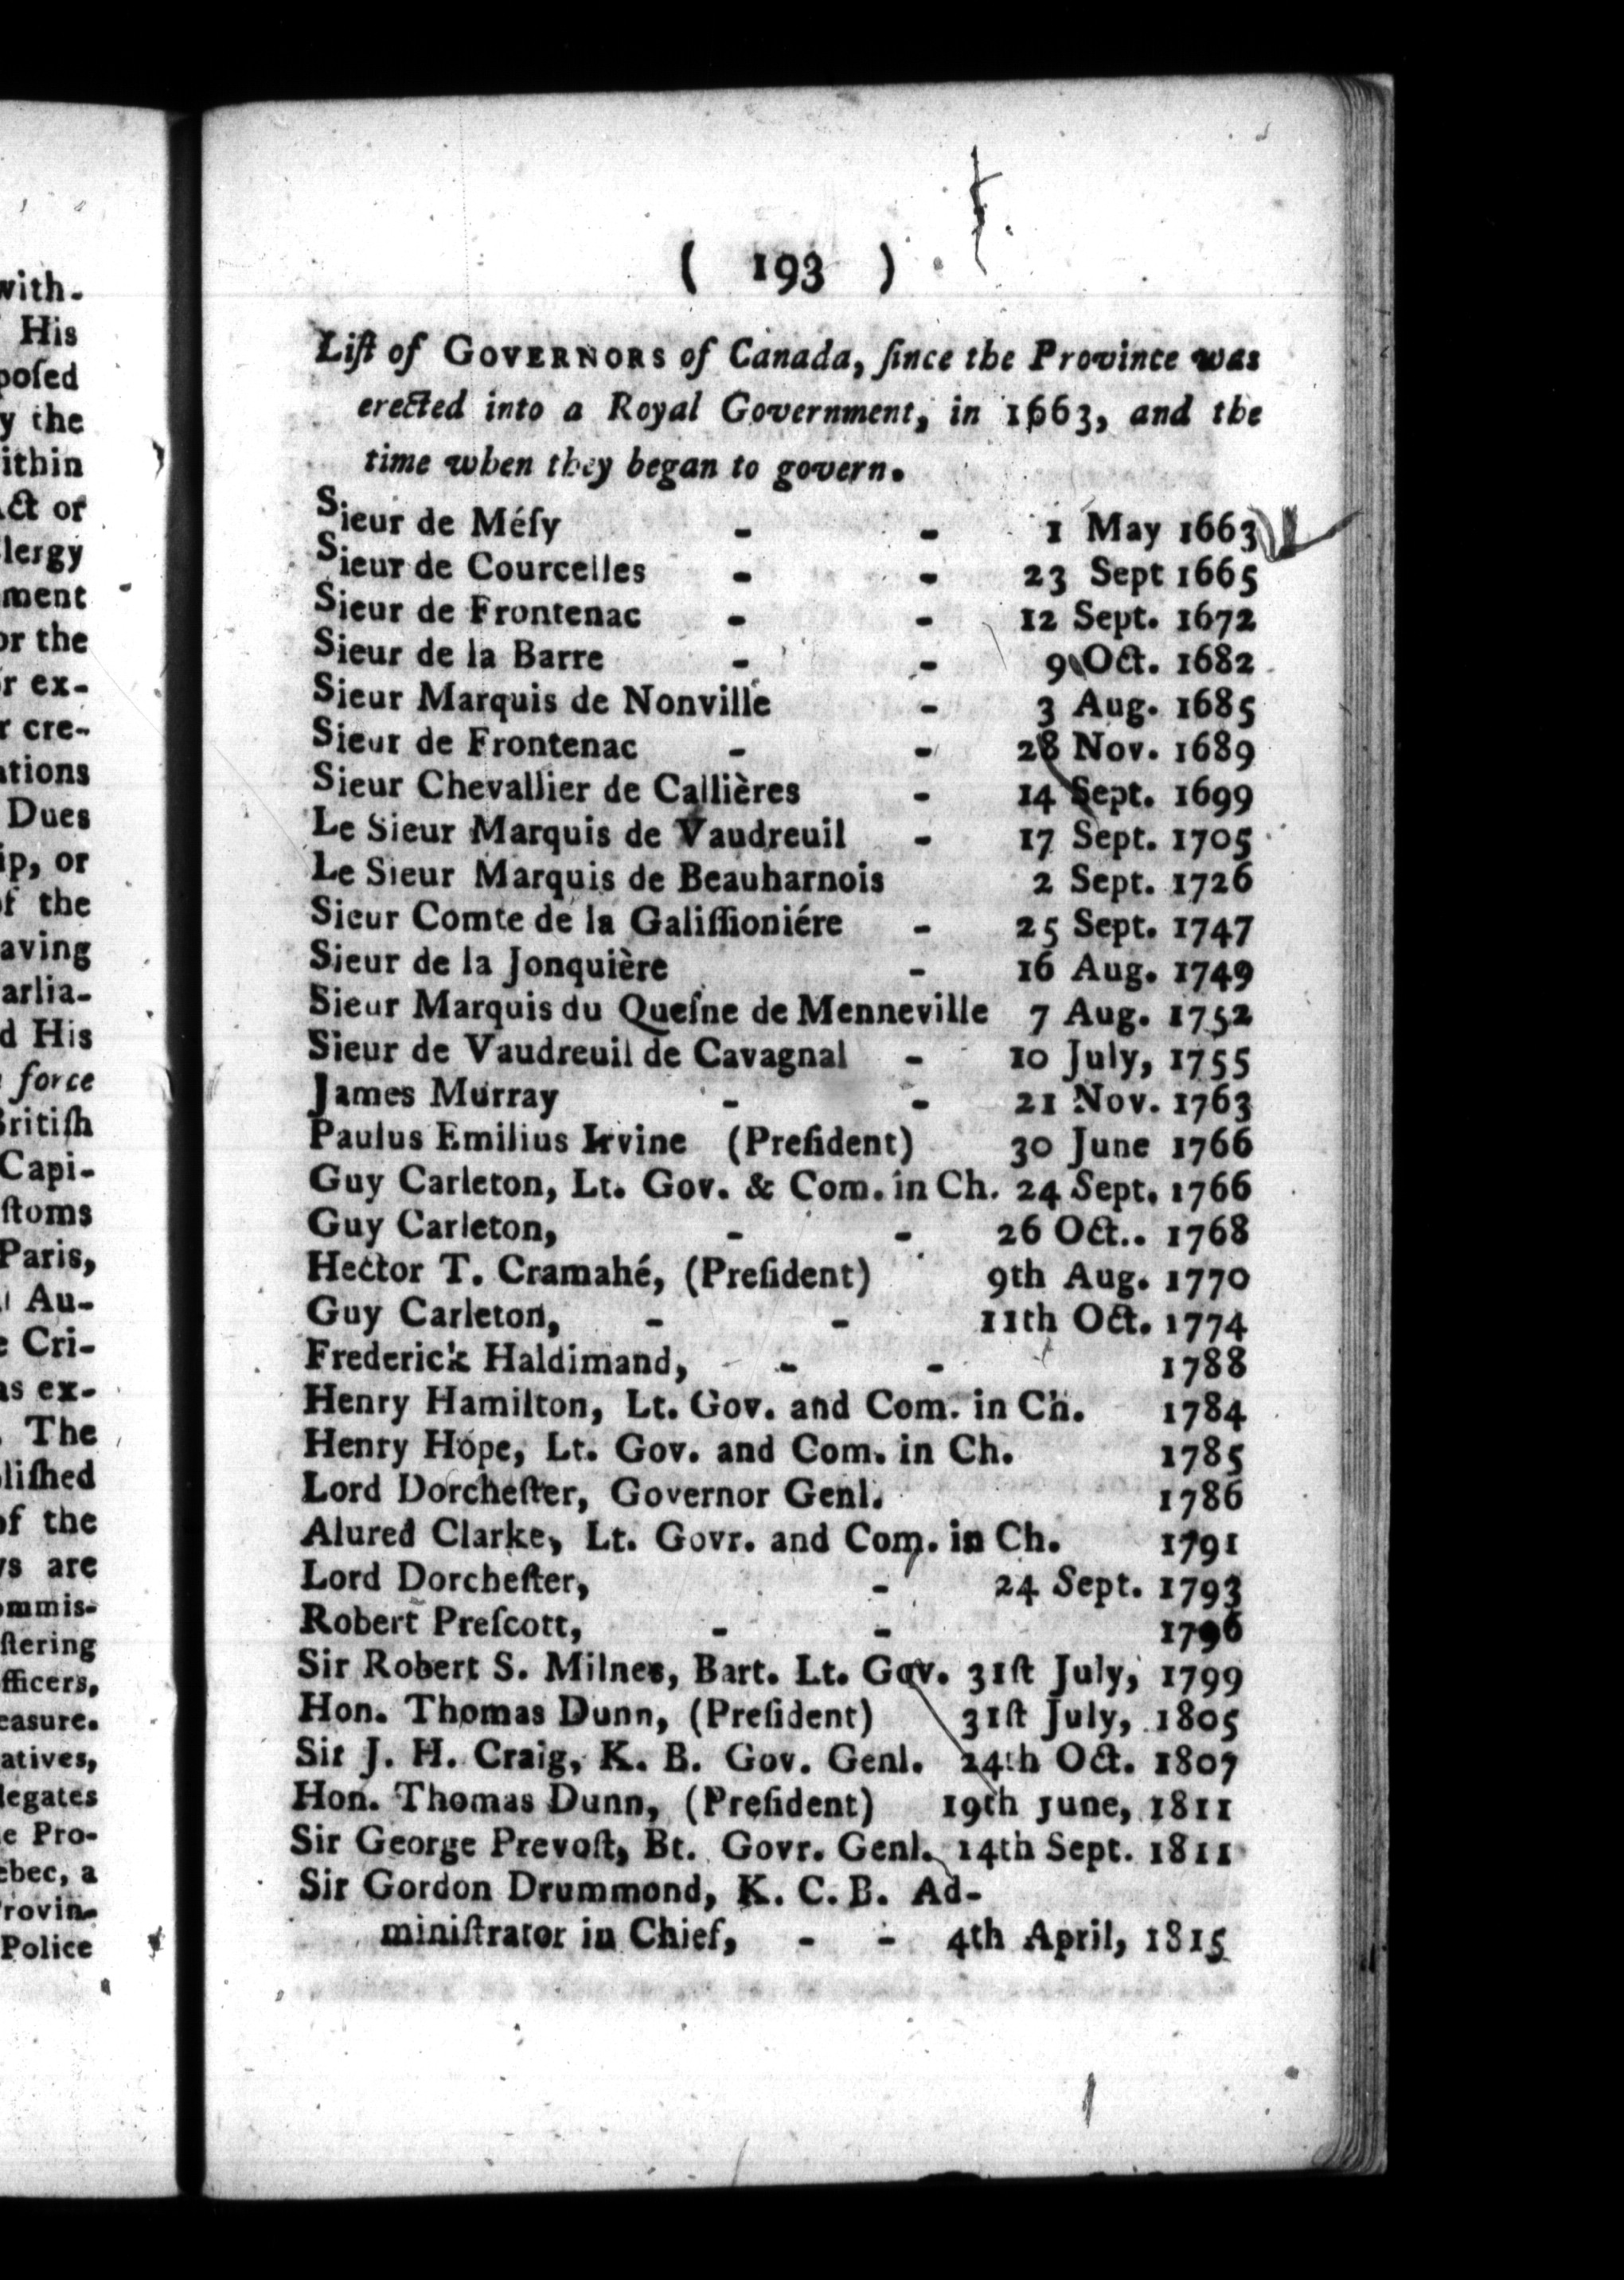 with-
His
posed
y the
ithin
Act or
lergy
ment
or the
r ex-
r cre-
ations
Dues
ip, or
of the
aving
arlia-
d His
force
Britiſh
Capi-
ſtoms
Paris,
Au-
e Cri-
as ex-
The
bliſhed
of the
ws are
ommis-
ſtering
fficers,
eaſure.
atives,
legates
e Pro-
ebec, a
Provin-
Police
( 193 )
Liſt of GOVERNORS of Canada, ſince the Province was
erected into a Royal Government, in 1663, and the
time when they began to govern.
Sieur de Méſy - - 1 May 1663
Sieur de Courcelles - - 23 Sept 1665
Sieur de Frontenac - - 12 Sept. 1672
Sieur de la Barre - - 9 Oct. 1682
Sieur Marquis de Nonville - 3 Aug. 1685
Sieur de Frontenac - - 28 Nov. 1689
Sieur Chevallier de Callières - 14 Sept. 1699
Le Sieur Marquis de Vaudreuil - 17 Sept. 1705
Le Sieur Marquis de Beauharnois 2 Sept. 1726
Sieur Comte de la Galiſſioniére - 25 Sept. 1747
Sieur de la Jonquière - 16 Aug. 1749
Sieur Marquis du Queſne de Menneville 7 Aug. 1752
Sieur de Vaudreuil de Cavagnal - 10 July, 1755
James Murray - - 21 Nov. 1763
Paulus Emilius Irvine (Preſident) 30 June 1766
Guy Carleton, Lt. Gov. & Com. in Ch. 24 Sept. 1766
Guy Carleton, - - 26 Oct.. 1768
Hector T. Cramahé, (Preſident) 9th Aug. 1770
Guy Carleton, - - 11th Oct. 1774
Frederick Haldimand, - - 1788
Henry Hamilton, Lt. Gov. and Com. in Ch. 1784
Henry Hope, Lt. Gov. and Com. in Ch. 1785
Lord Dorcheſter, Governor Genl. 1786
Alured Clarke, Lt. Govr. and Com. in Ch. 1791
Lord Dorcheſter, - 24 Sept. 1793
Robert Preſcott, - - 1796
Sir Robert S. Milnes, Bart. Lt. Gov. 31ſt July, 1799
Hon. Thomas Dunn, (Preſident) 31ſt July, 1805
Sir J. H. Craig, K. B. Gov. Genl. 24th Oct. 1807
Hon. Thomas Dunn, (Preſident) 19th june, 1811
Sir George Prevoſt, Bt. Govr. Genl. 14th Sept. 1811
Sir Gordon Drummond, K. C. B. Ad-
miniſtrator in Chief, - - 4th April, 1815